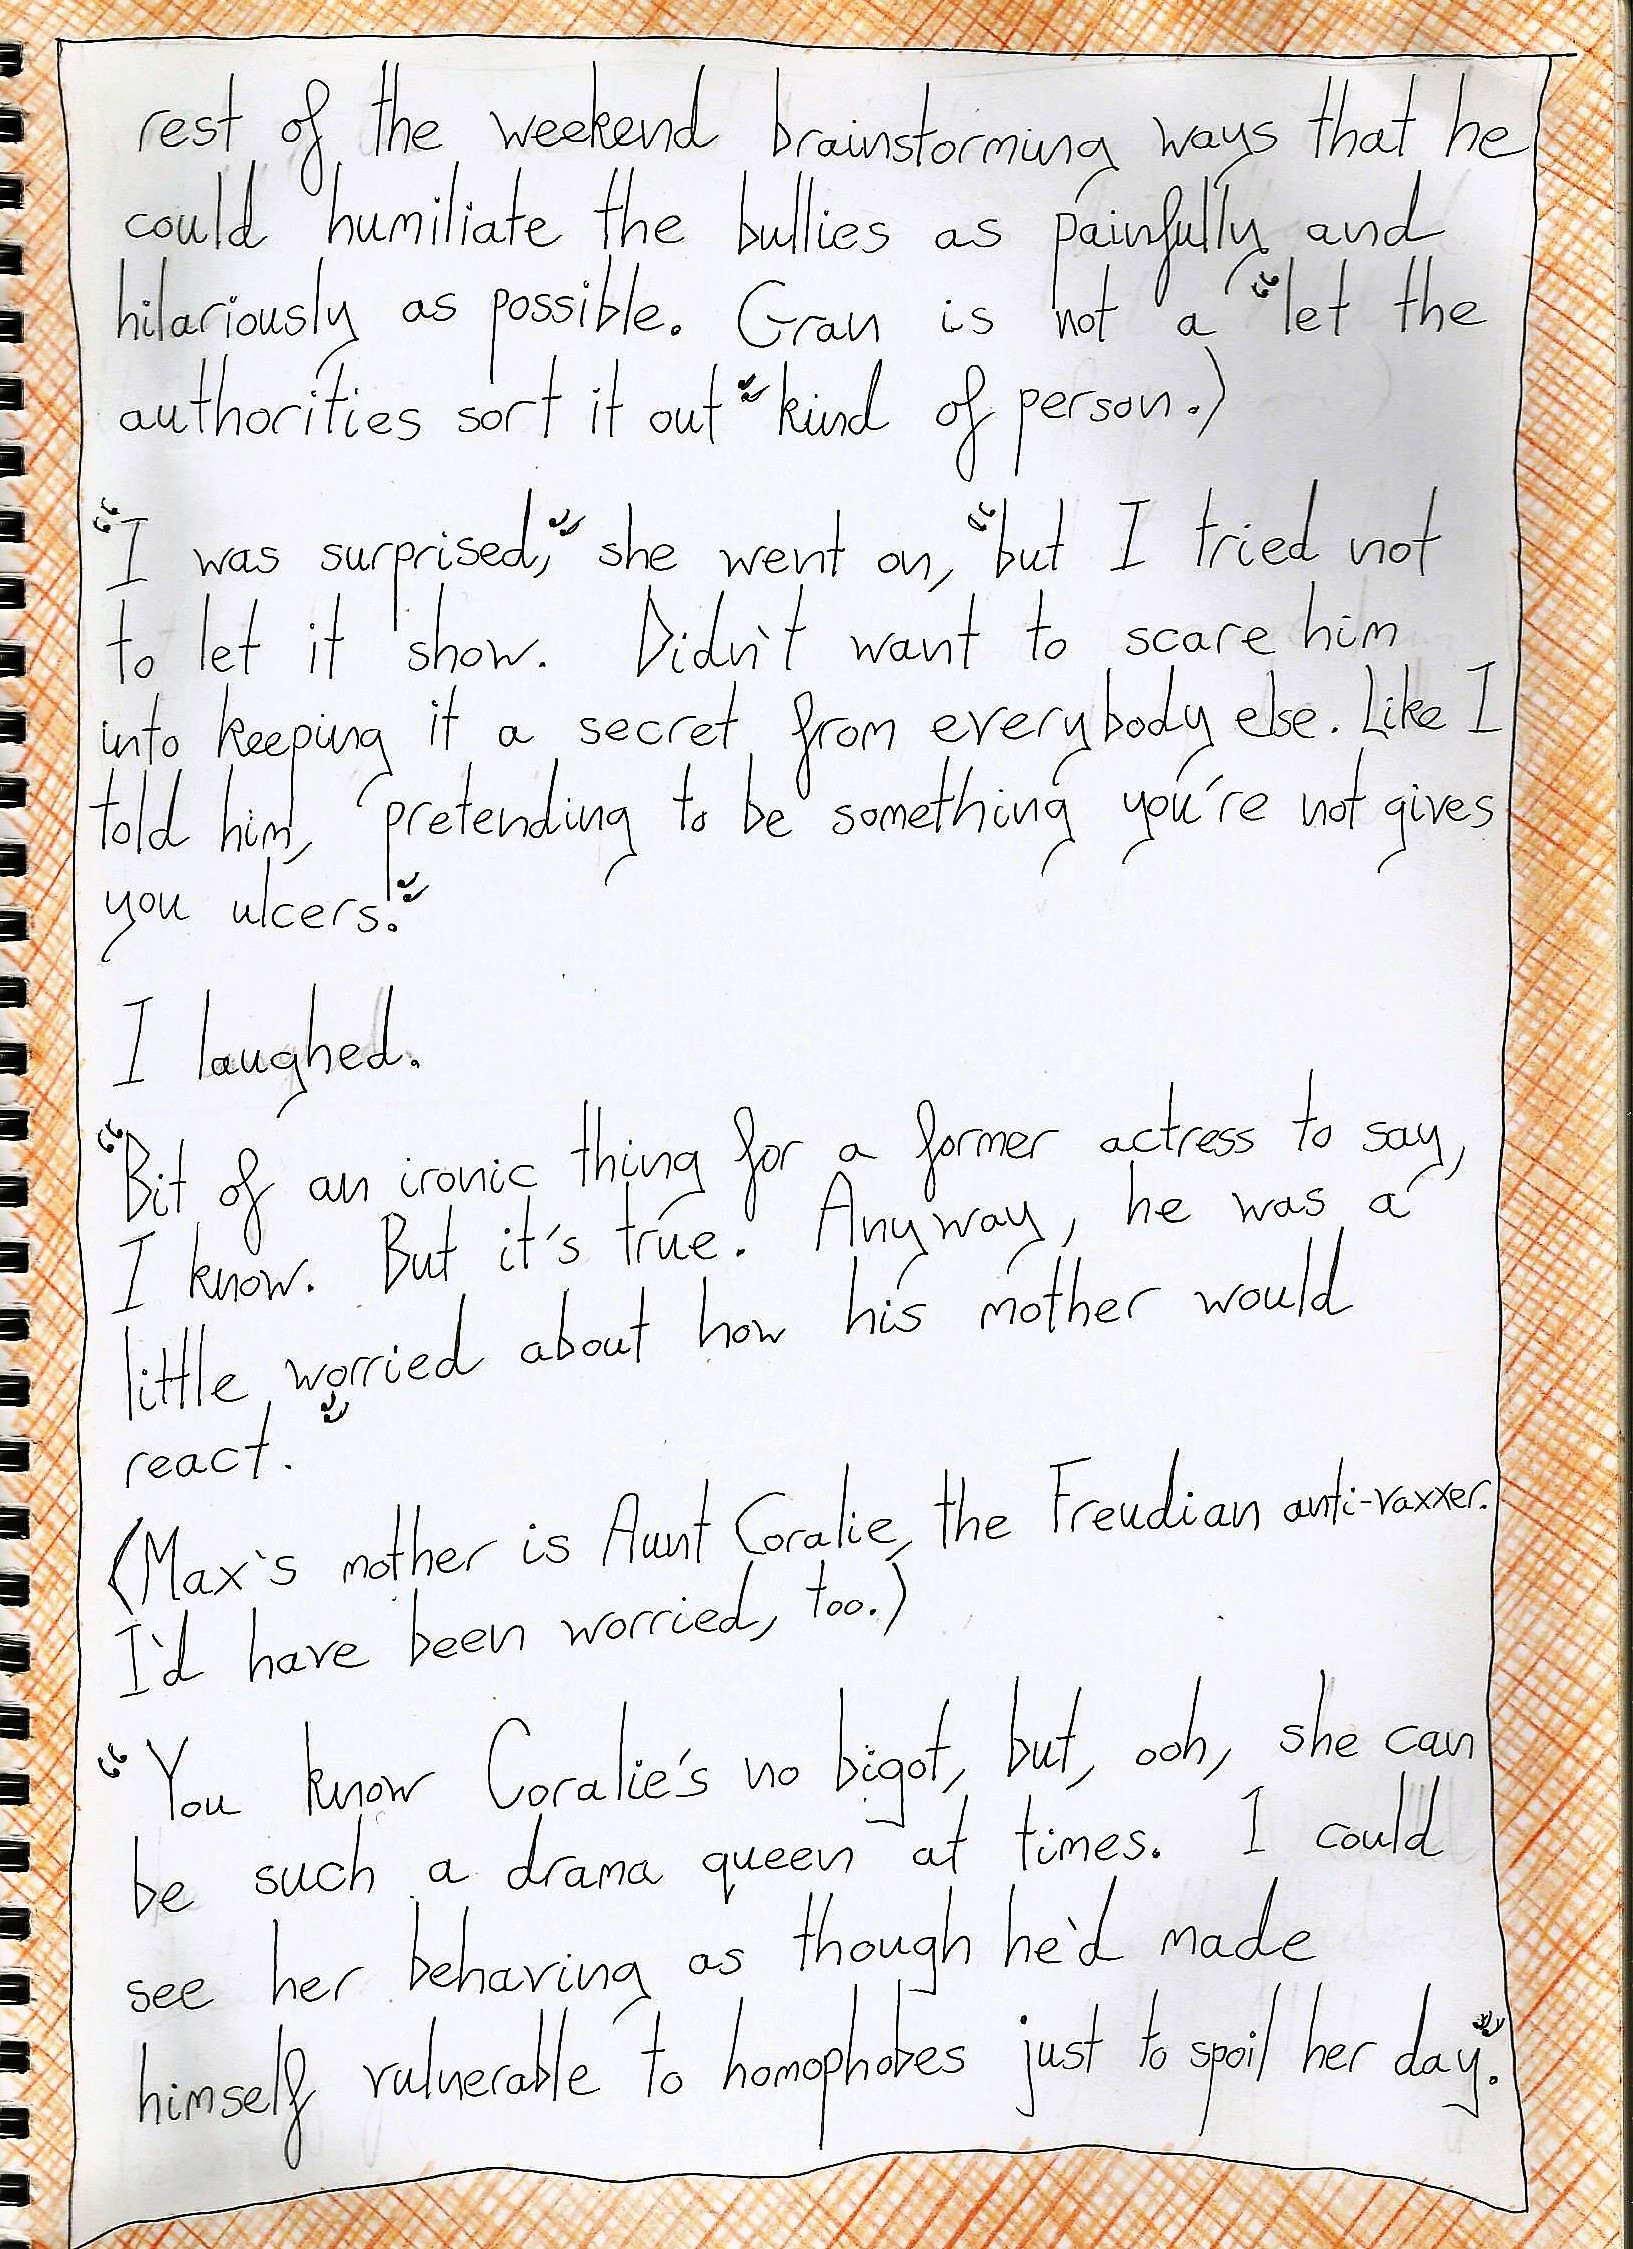 rest of the weekend brainstorming ways that he
could humiliate the bullies as painfully and
hilariously as possible. Gran is not a “let the
authorities sort it out” kind of person.)
“I was surprised,” she went on, “but I tried not
to let it show. Didn't want to scare him
into keeping it a secret from everybody else. Like I
told him, pretending to be something you're not gives
you ulcers.”
I laughed.
“Bit of an ironic thing for a former actress to say,
I know. But it's true. Anyway, he was a
little worried about how his mother would
react.”
(Max's mother is Aunt Coralie, the Freudian anti-vaxxer.
I'd have been worried, too.)
“You know Coralie's no bigot, but, ooh, she can
be such a drama queen at times. I could
see her behaving as though he'd made
himself vulnerable to homophobes just to spoil her day.”